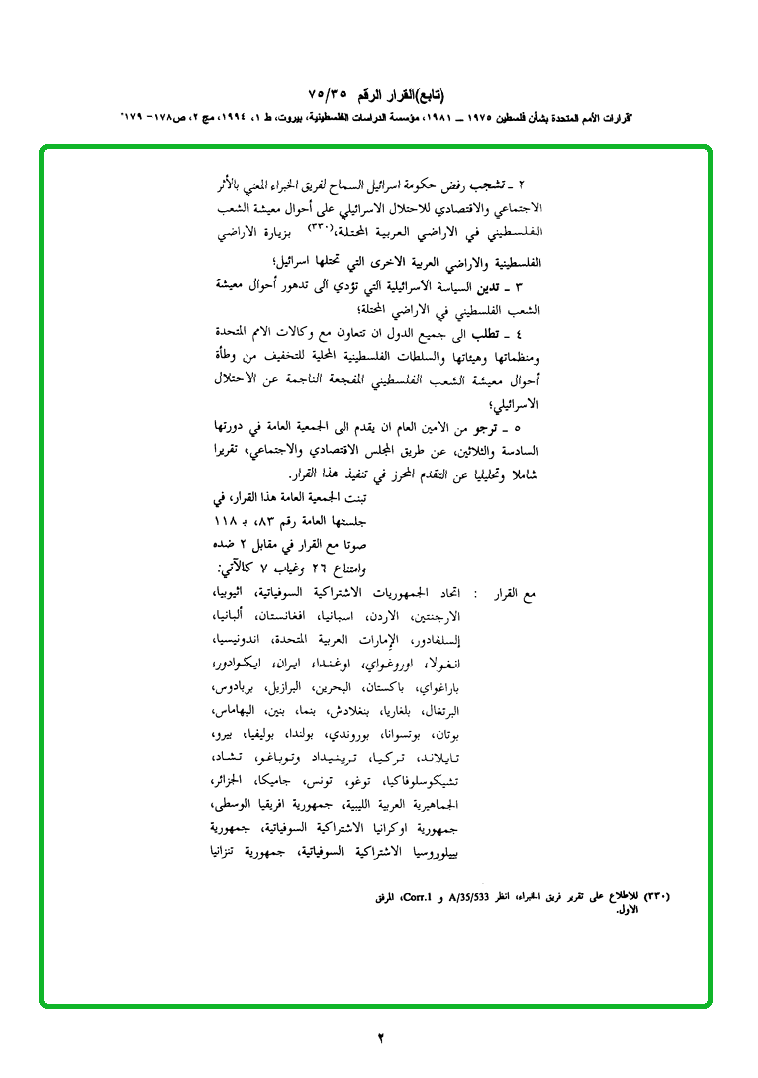 (تابع)القرار الرقم ٧٥/٣٥
"قرارات الأمم المتحدة بشأن فلسطين ١٩٧٥ ــ ١٩٨١، مؤسسة الدراسات الفلسطينية، بيروت، ط ١، ١٩٩٤، مج ٢، ص١٧٨- ١٧٩"
٢ ـ تشجب رفض حكومة اسرائيل السماح لفريق الخبراء المعني بالأثر
الاجتماعي والاقتصادي للاحتلال الاسرائيلي على أحوال معيشة الشعب
الفلسطيني في الاراضي العربية المحتلة،(٣٣٠) بزيارة الاراضي
الفلسطينية والاراضي العربية الاخرى التي تحتلها اسرائيل؛
٣ ـ تدين السياسة الاسرائيلية التي تؤدي الى تدهور أحوال معيشة
الشعب الفلسطيني في الاراضي المحتلة؛
٤ ـ تطلب الى جميع الدول ان تتعاون مع وكالات الامم المتحدة
ومنظماتها وهيئاتها والسلطات الفلسطينية المحلية للتخفيف من وطأة
أحوال معيشة الشعب الفلسطيني المفجعة الناجمة عن الاحتلال
الاسرائيلي؛
٥ ـ ترجو من الامين العام ان يقدم الى الجمعية العامة في دورتها
السادسة والثلاثين، عن طريق المجلس الاقتصادي والاجتماعي، تقريرا
شاملا وتحليليا عن التقدم المحرز في تنفيذ هذا القرار.
تبنت الجمعية العامة هذا القرار، في
جلستها العامة رقم ٨٣، بـ ١١٨
صوتا مع القرار في مقابل ٢ ضده
وامتناع ٢٦ وغياب ٧ كالآتي:
مع القرار : اتحاد الجمهوريات الاشتراكية السوفياتية، اثيوبيا،
الارجنتين، الاردن، اسبانيا، افغانستان، ألبانيا،
إلسلفادور، الإمارات العربية المتحدة، اندونيسيا،
انغولا، اوروغواي، اوغندا، ايران، ايكوادور،
باراغواي، باكستان، البحرين، البرازيل، بربادوس،
البرتغال، بلغاريا، بنغلادش، بنما، بنين، البهاماس،
بوتان، بوتسوانا، بوروندي، بولندا، بوليفيا، بيرو،
تايلاند، تركيا، ترينيداد وتوباغو، تشاد،
تشيكوسلوفاكيا، توغو، تونس، جاميكا، الجزائر،
الجماهيرية العربية الليبية، جمهورية افريقيا الوسطى،
جمهورية اوكرانيا الاشتراكية السوفياتية، جمهورية
بييلوروسيا الاشتراكية السوفياتية، جمهورية تنزانيا
(٣٣٠) للاطلاع على تقرير فريق الخبراء، انظر A/35/533 و Corr.1، المرفق
الاول.
٢